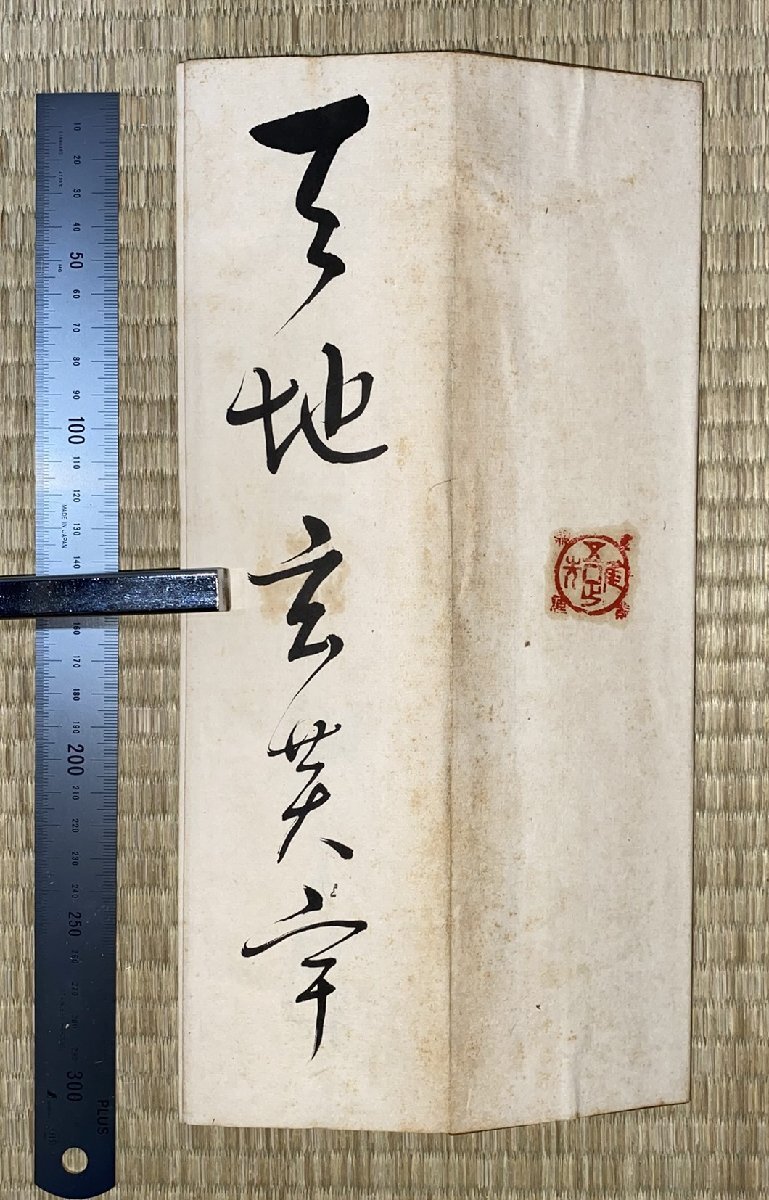 吾唯足知
天地玄黄宇
10 20 30 40 50 60 70 80 90 100 110 120 130 140 160 170 180 190 200 210 220 230 240 250 300
MADE IN JAPAN
PLUS